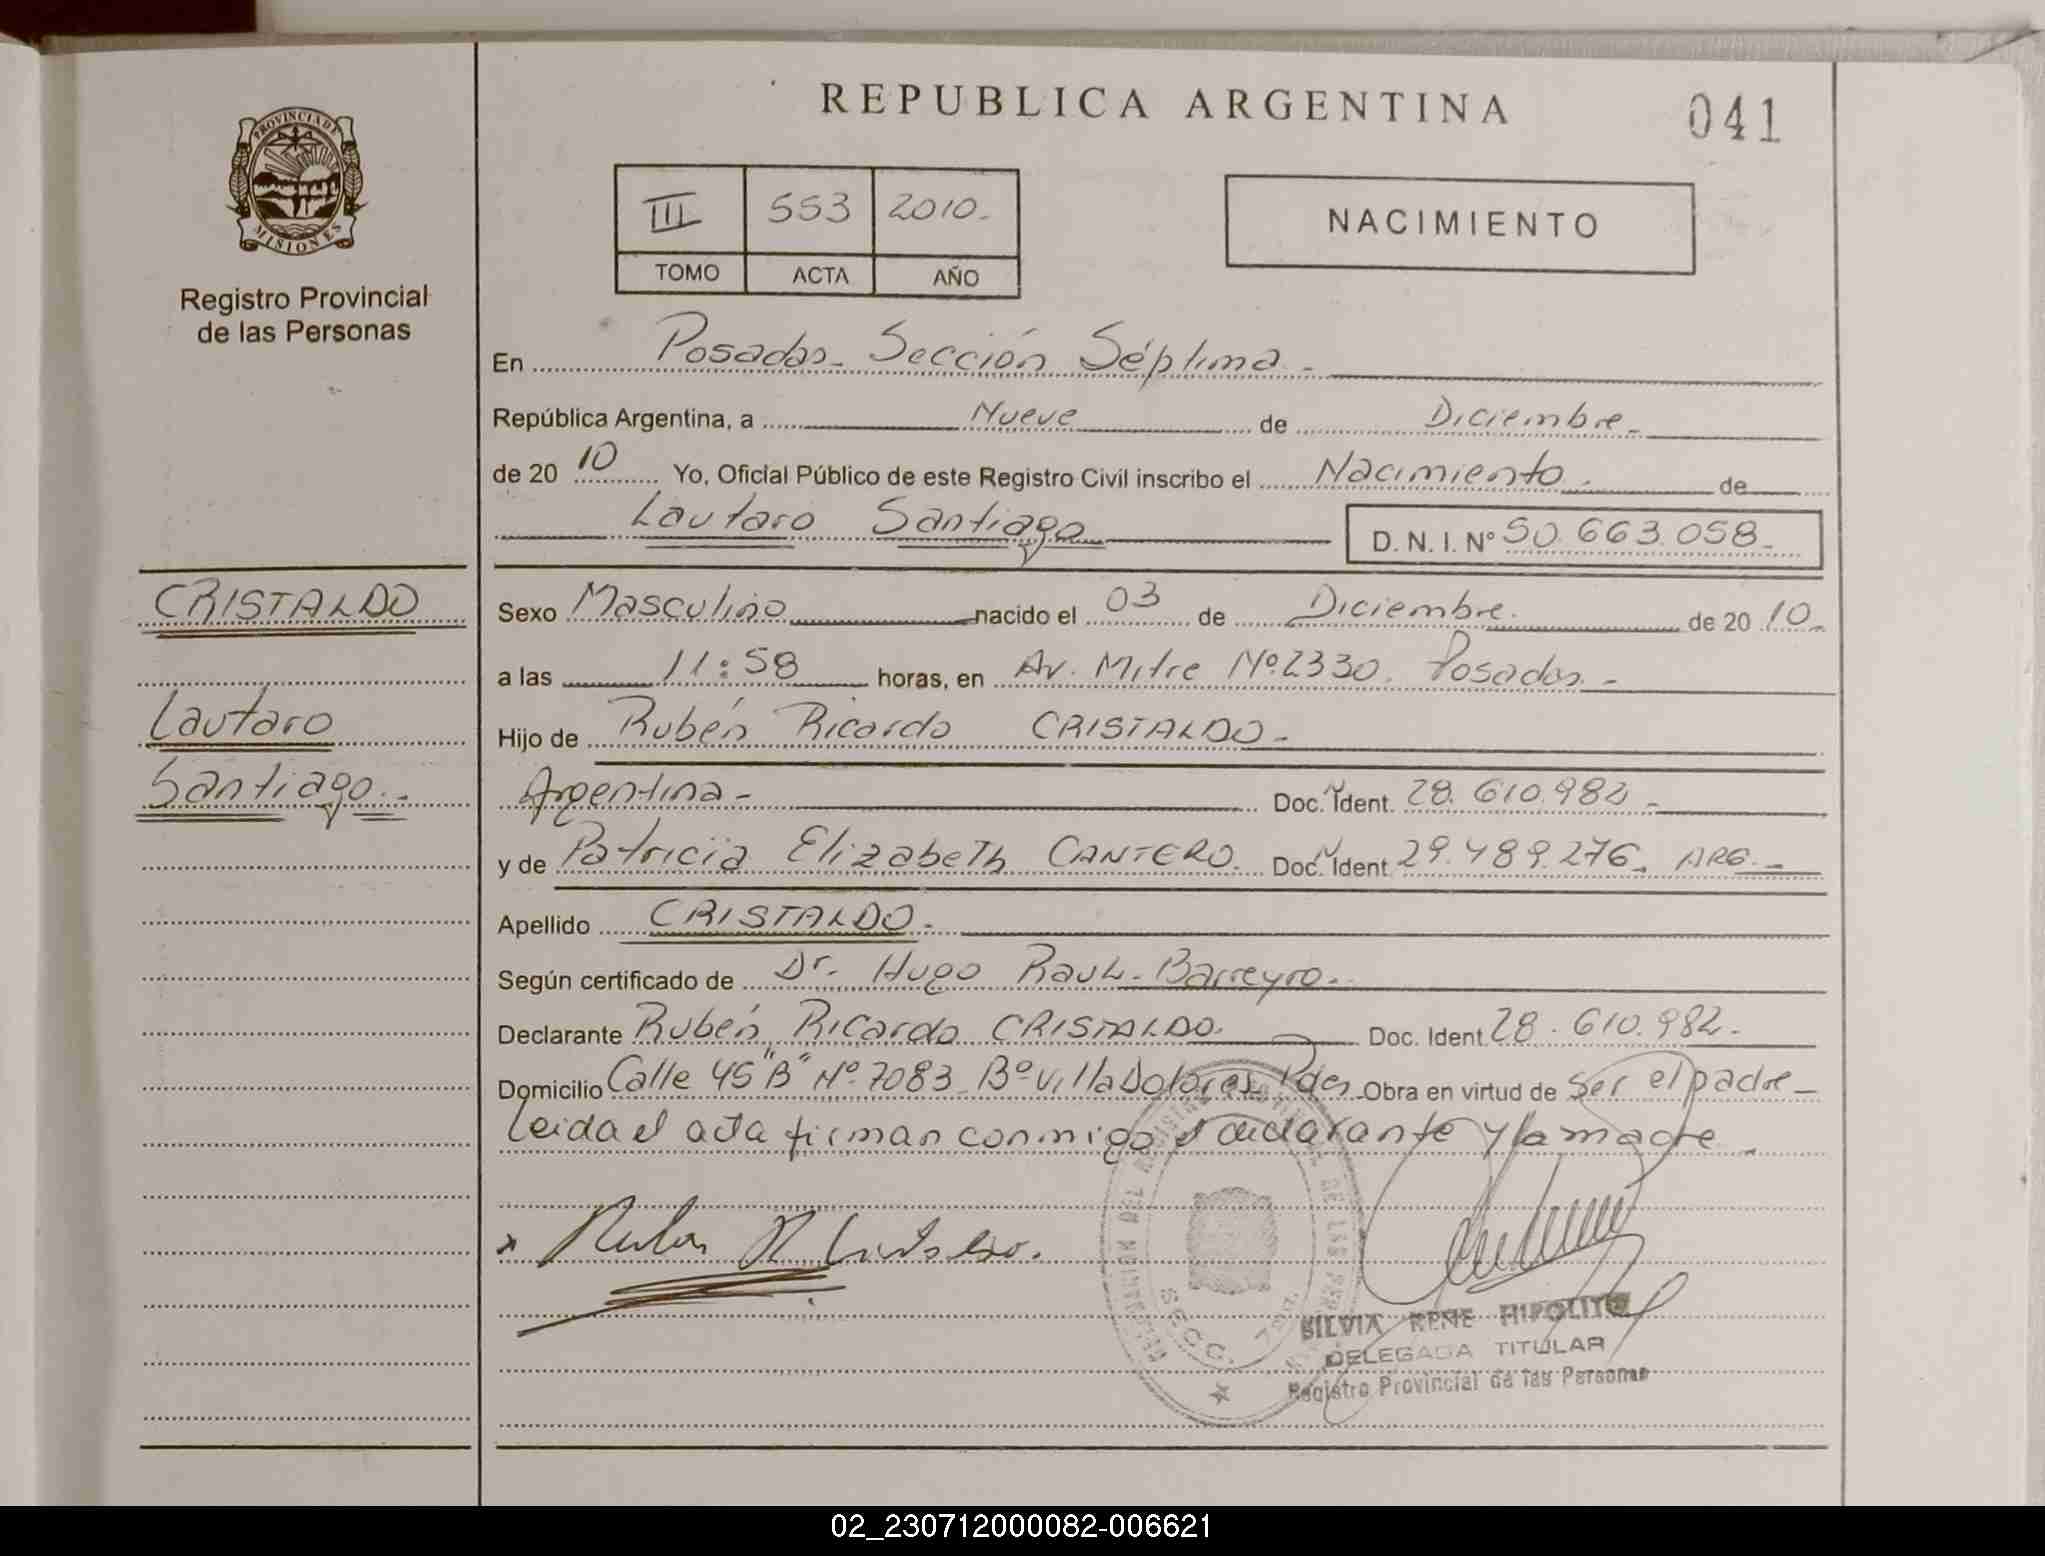 REPUBLICA ARGENTINA
041
PROVINCIA DE
MISIONES
Registro Provincial
de las Personas
III 553 2010.
TOMO ACTA AÑO
NACIMIENTO
En Posadas - Sección Séptima -
República Argentina, a Nueve de Diciembre -
de 20 10 Yo, Oficial Público de este Registro Civil inscribo el Nacimiento - de
Lautaro Santiago D. N. I. Nº 50.663.058 -
CRISTALDO
Lautaro
Santiago. -
Sexo Masculino nacido el 03 de Diciembre. de 20 10.
a las 11:58 horas, en Av. Mitre Nº 2330. Posadas. -
Hijo de Rubén Ricardo CRISTALDO -
Argentina - Doc. Ident. 28.610.982 -
y de Patricia Elizabeth CANTERO. Doc. Ident. 29.489.276. ARG. -
Apellido CRISTALDO -
Según certificado de Dr. Hugo Raul - Barreyro. -
Declarante Rubén Ricardo CRISTALDO. Doc. Ident 28.610.982 -
Domicilio Calle 45 "B" Nº 7083 Bº Villa Dolores Pdas Obra en virtud de Ser el padre -
Leida el acta firman conmigo el declarante y la madre -
SECC.
SILVIA RENE HIPOLITO
DELEGADA TITULAR
Registro Provincial de las Personas
02_230712000082-006621